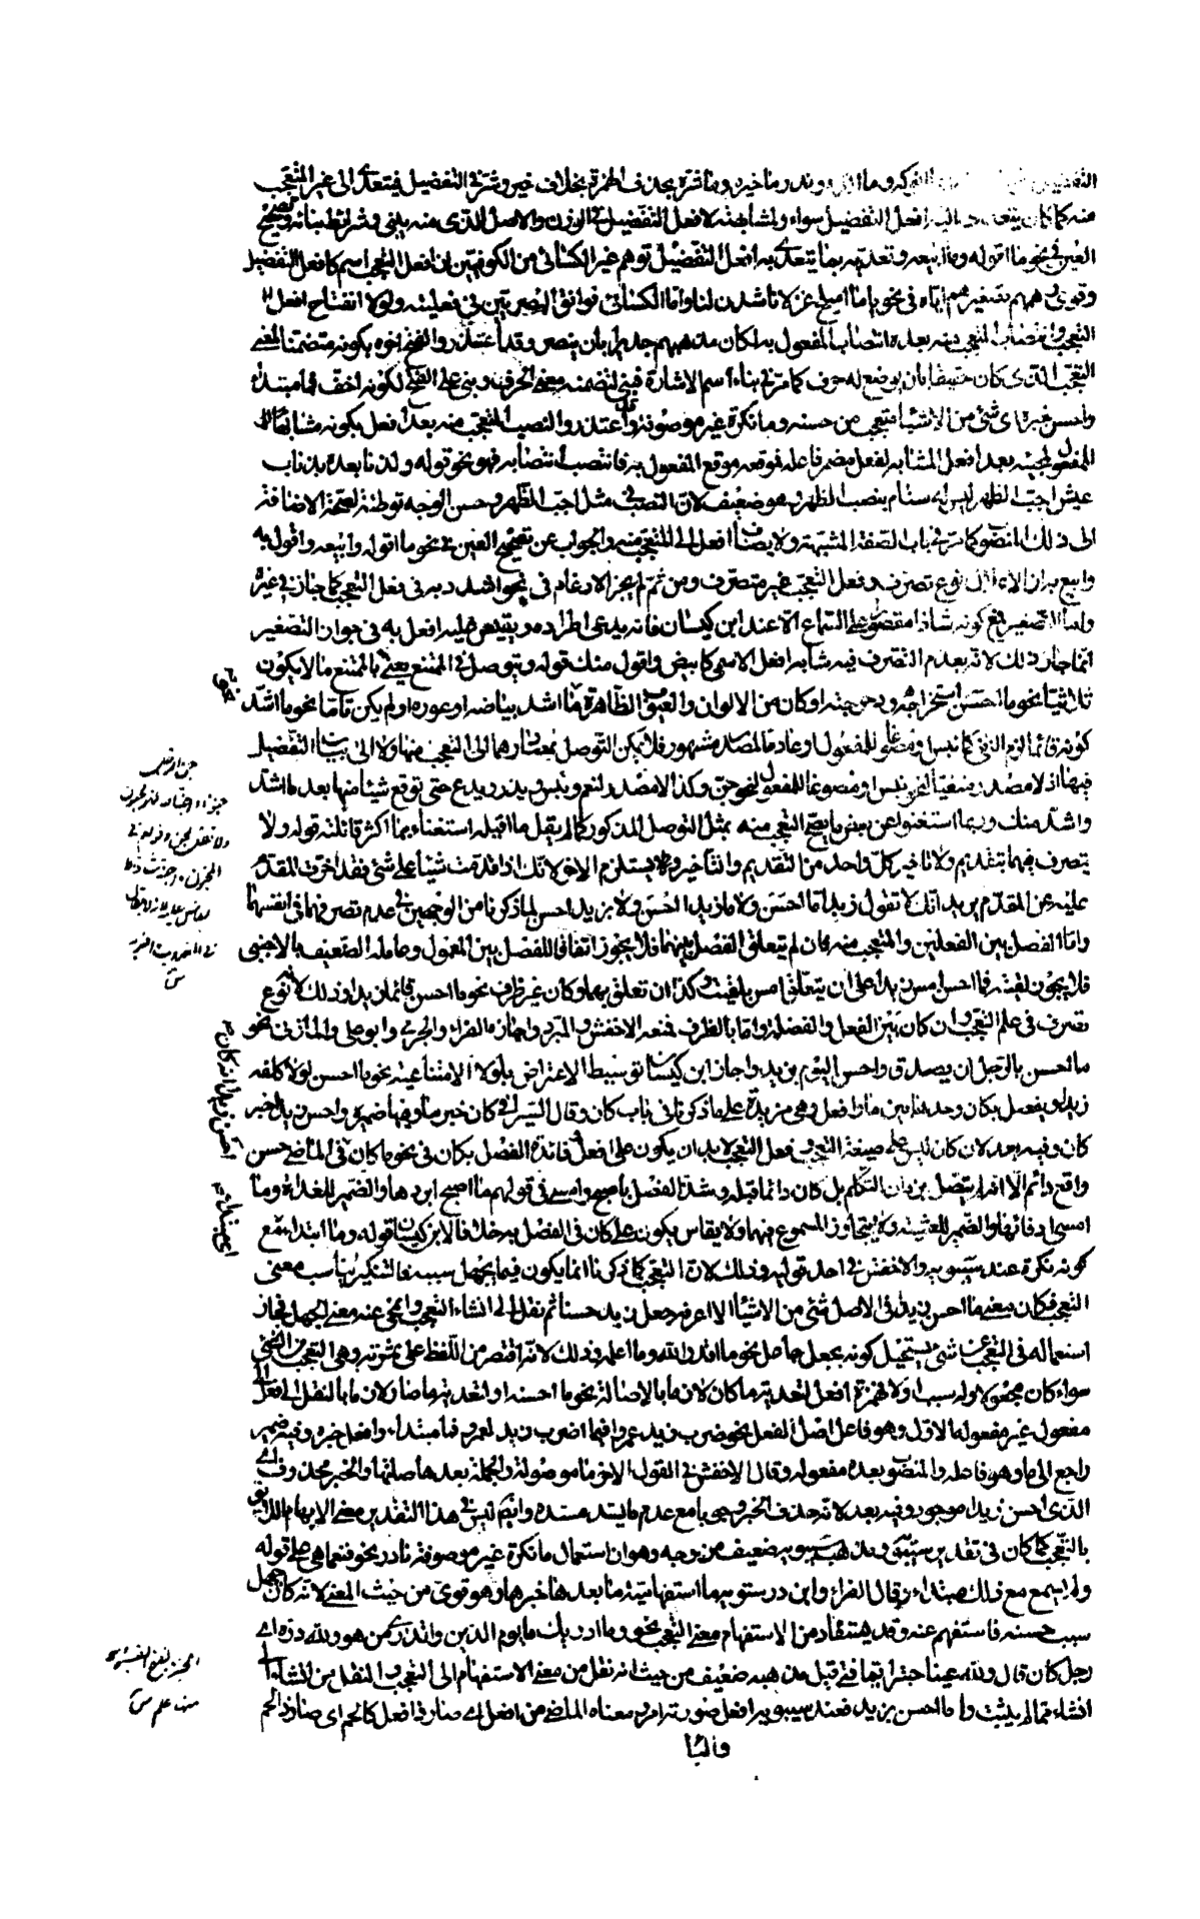 وما خيره وما شره بحذف الهمزة بخلاف خير وشر في التفضيل فيتعدى الى غير المتعجب
منه كما كان يتعدى افعل التفضيل سواء ولمشابهته لافعل التفضيل في الوزن والاصل الذي منه يبنى وشرائط بنائه وتصحيح
العين في نحو ما اقوله وما ابيعه وتعديه بما يتعدى به افعل التفضيل توهم غير الكسائي من الكوفيين ان افعل التعجب اسم كافعل التفضيل
وقوى وهمهم تصغيرهم اياه في نحو ياما اميلح غزلانا شدن لنا واما الكسائي فوافق البصريين في فعليته ولولا انفتاح افعل
التعجب وانتصاب المتعجب منه بعده انتصاب المفعول به لكان مذهبهم جديرا بان ينصر وقد اعتذروا لفتح اخره بكونه متضمنا لمعنى
التعجب الذي كان حقيقا بان يوضع له حرف كما مر في بناء اسم الاشارة فبني لتضمنه معنى الحرف وبني على الفتح لكونه اخف فما مبتدأ
واحسن خبره اى شئ من الاشياء متعجب من حسنه وما نكرة غير موصوفة واعتذروا لنصب المتعجب منه بعد افعل بكونه مشابها
المفعول لمجيئه بعد افعل المشابه لفعل مضمر فاعله فوقعه موقع المفعول به فانتصب انتصابه فهو نحو قوله ولدنا بعده بذناب
عيش اجب الظهر ليس له سنام بنصب الظهر وهو ضعيف لان النصب في مثل اجب الظهر وحسن الوجه توطئة لصحة الاضافة
الى ذلك المنصوب كما مر في باب الصفة المشبهة ولا يضاف افعل الى المتعجب منه والجواب عن تصحيح العين في نحو ما اقوله وابيعه واقول به
وابيع به ان الاعلال نوع تصرف وفعل التعجب غير متصرف ومن ثم لم يجز الادغام في نحو اشدد به في فعل التعجب كما جاز في غيره
واما التصغير فمع كونه شاذا مقصورا على السماع الا عند ابن كيسان فانه يدعى اطراده ويقيس عليه افعل به في جواز التصغير
انما جاز ذلك لانه بعدم التصرف فيه شابه افعل الاسمي كابيض واقول منك قوله ويتوصل في الممتنع يعني بالممتنع ما لا يكون
ثلاثيا نحو ما احسن استخراجه ودحرجته او كان من الالوان والعيوب الظاهرة ما اشد بياضه او عوره او لم يكن تاما نحو ما اشد
كونه قائما لزم النفي كما نبس ومصوغا للمفعول او عادما لمصدر مشهور فلا يمكن التوصل بمصادرها الى التعجب منها ولا الى بيان التفضيل
فيها اذ لا مصدر منفيا لغير نبس او مصوغا للمفعول لنحو جن وكذا لا مصدر لنعم وبئس ويذر ويدع حتى توقع شيئا منها بعد ما اشد
واشد منك وربما استغنوا عن بعض ما يصح التعجب منه بمثل التوصل المذكور كما لم يقل ما اقيله استغناء بما اكثر قائلته قوله ولا
يتصرف فيهما بتقديم ولا تاخير كل واحد من التقديم والتاخير يستلزم الاخر لانك اذا قدمت شيئا على شئ فقد اخرت المقدم
عليه عن المقدم يريد انك لا تقول زيدا ما احسن ولا ما زيدا احسن ولا بزيد احسن لما ذكرنا من الوجهين في عدم تصرفهما في انفسهما
واما الفصل بين الفعلين والمتعجب منه فان لم يتعلق الفصل بهما فلا يجوز اتفاقا للفصل بين المعمول وعامله الضعيف بالاجنبي
فلا يجوز لقيته فما احسن امس زيدا على ان يتعلق امس بلقيت وكذا ان تعلق بهما وكان غير ظرف نحو ما احسن قائما زيدا وذلك لانه نوع
تصرف في علم التعجب وان كان بين الفعل والفضلة واما بالظرف فمنعه الاخفش والمبرد واجازه الفراء والجرمي وابو علي والمازني نحو
ما احسن بالرجل ان يصدق واحسن اليوم بزيد واجاز ابن كيسان توسيط الاعتراض بلولا الامتناعية نحو ما احسن لولا كلفه
زيدا ويفصل بكان وحدها بين ما وافعل وهي مزيدة على ما ذكرنا في باب كان وقال السيرافي كان خبر ما وفيها ضميره واحسن زيدا خبر
كان وفيه بعد لان كان ليس على صيغة التعجب وفعل التعجب لا بد ان يكون على افعل وفائدة الفصل بكان في نحو ما كان في الماضي حسن
واقع دائم الا انه لم يتصل بزمان التكلم بل كان دائما قبله وشذ الفصل باصبح وامسى في قولهم ما اصبح ابردها والضمير للغداة وما
امسى ادفأها والضمير للعشية ولا يتجاوز المسموع فيهما ولا يقاس يكون على كان في الفصل به خلافا لابن كيسان قوله وما ابتداء مع
كونه نكرة عند سيبويه والاخفش في احد قوليه وذلك لان التعجب كما ذكرنا انما يكون فيما يجهل سببه فالتنكير يناسب معنى
التعجب فكان معنى ما احسن زيدا في الاصل شئ من الاشياء لا اعرفه جعل زيدا حسنا ثم نقل الى انشاء التعجب وانمحى عنه معنى الجعل فجاز
استعماله في التعجب عن شئ يستحيل كونه بجعل جاعل نحو ما اقدر الله وما اعلمه وذلك لانه اقتصر من اللفظ على ثمرته وهي التعجب من الشئ
سواء كان مجعولا وله سبب او لا فهمزة افعل لتعدية ما كان لازما بالاصالة نحو ما احسنه او لتعدية ما صار لازما بالنقل الى افعل الى
مفعول غير مفعوله الاول وهو فاعل اصل الفعل نحو ضرب زيد عمروا فما اضرب زيدا لعمرو فما مبتداء وافعل خبره وفيه ضمير
راجع الى ما وهو فاعله والمنصوب بعده مفعوله وقال الاخفش في القول الاخر ما موصولة والجملة بعدها صلتها والخبر محذوف اى
الذى احسن زيدا موجود وفيه بعد لانه حذف الخبر وجوبا مع عدم ما يسد مسده وايضا ليس في هذا التقدير معنى الابهام اللايق
بالتعجب كما كان في تقدير سيبويه ومذهب سيبويه ضعيف من وجه وهو ان استعمال ما نكرة غير موصوفة نادر نحو فنعما هي على قوله
ولم يسمع مع ذلك مبتداء وقال الفراء وابن درستويه ما استفهامية ما بعدها خبرها وهو قوى من حيث المعنى لانه كان جهل
سبب حسنه فاستفهم عنه وقد يستفاد من الاستفهام معنى التعجب نحو وما ادريك ما يوم الدين واتدرى من هو ولله دره اى
رجل كان قال ولله عينا حبتر ايما فتى قيل مذهبه ضعيف من حيث انه نقل من معنى الاستفهام الى التعجب والنقل من انشاء الى
انشاء مما لم يثبت واما احسن بزيد فعند سيبويه افعل صورته امر ومعناه الماضي من افعل اى صار ذا فعل كالحم اى صار ذا لحم
والباء